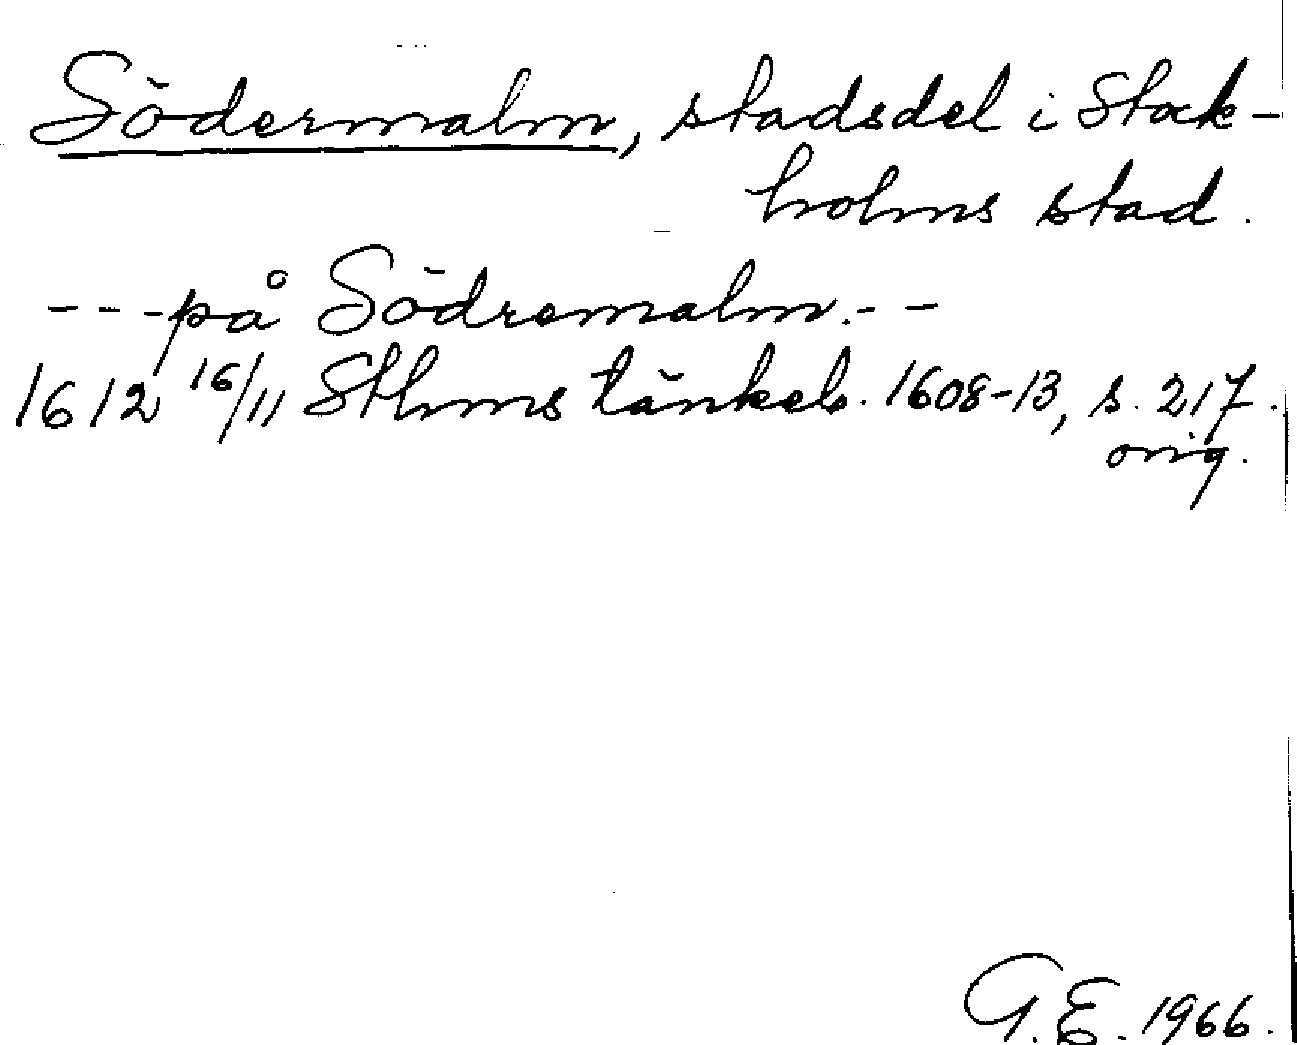 Södermalm, stadsdel i Stock-
holms stad.
---på Södremalm.--
1612 16/11 Sthms tänkeb. 1608-13, s. 217.
orig.
G.E. 1966.